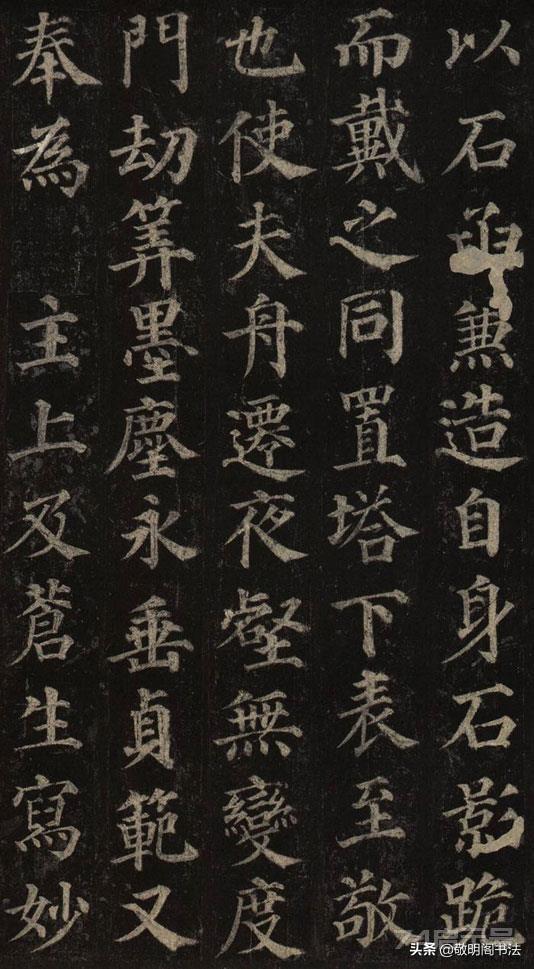 以石函兼造自身石影跪
而戴之同置塔下表至敬
也使夫舟遷夜壑無變度
門劫筭墨塵永垂貞範又
奉為 主上及蒼生寫妙
头条 @敬明阁书法